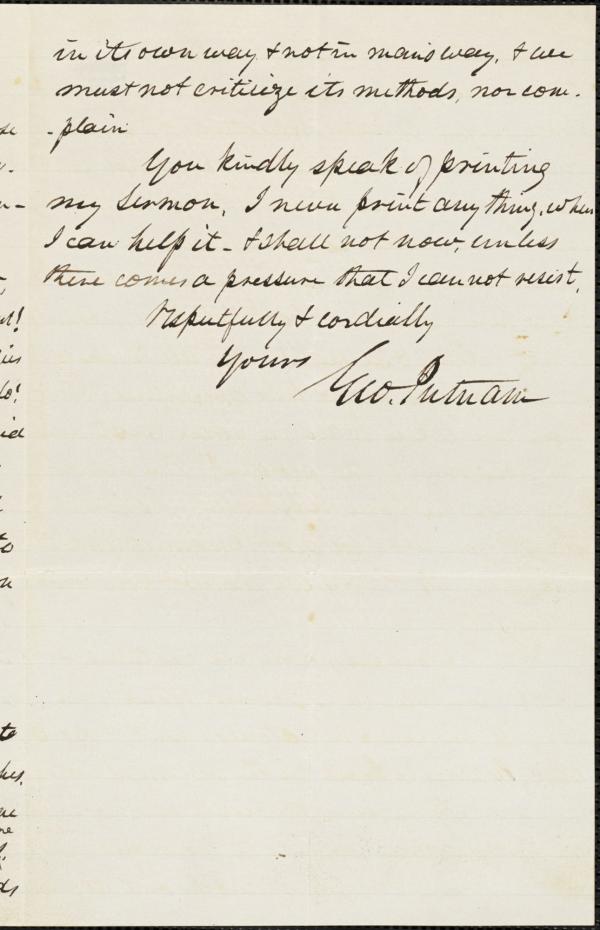 in its own way & not in man's way, & we
must not criticize its methods, nor com-
-plain
You kindly speak of printing
my Sermon. I never print any thing, when
I can help it - & shall not now, unless
there comes a pressure that I can not resist.
Respectfully & cordially
Yours
Geo. Putnam